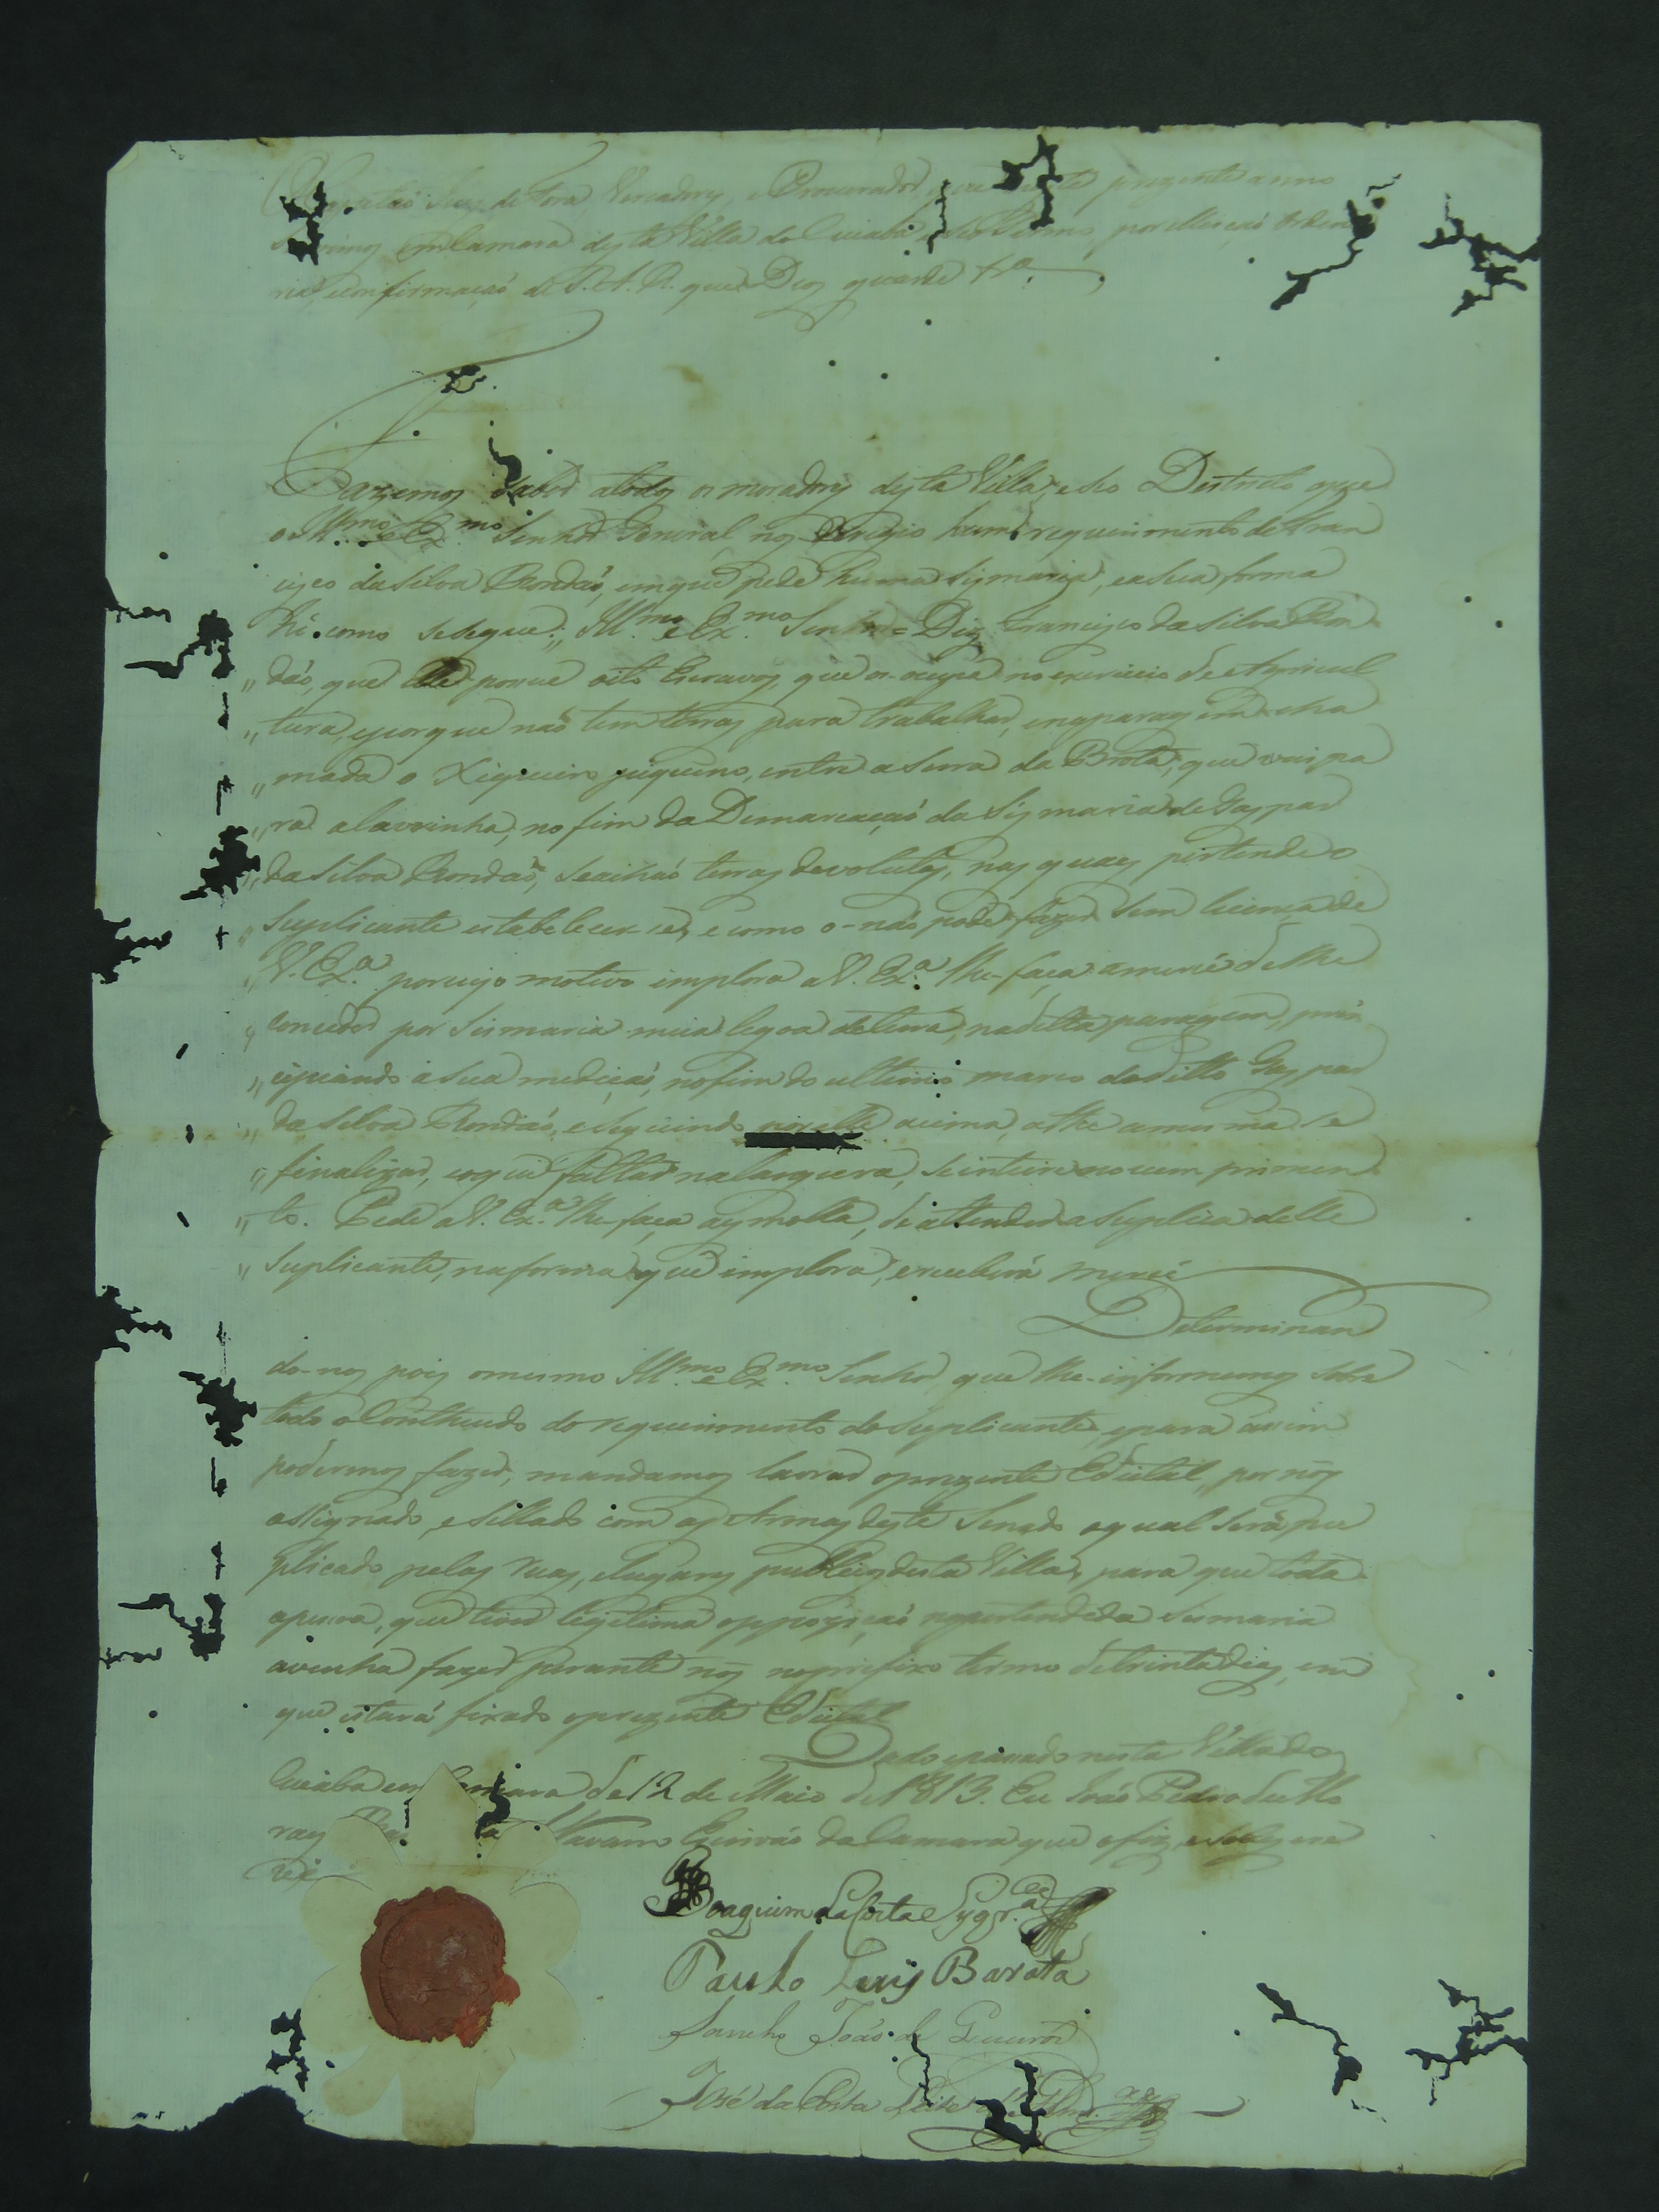 Juiz de Fora, Vereadores, e Procurador, que este prezente anno
servimos em Camara desta Villa do Cuiabá e seo Termo, por elleiçaõ Ordina
ria, e confirmaçaõ de S. A. R. que Deos guarde &.ª
Fazemos saber atodos os moradores desta Villa, e seo Destricto que
o Ill.mo e Ex.mo Senhor General nos derigio hum requerimento de Fran
cisco da Silva Rondaõ, em que pede huma sismaria, e a sua forma
hé como se segue: Ill.mo e Ex.mo Senhor = Diz Francisco da Silva Ron
" daõ, que elle posue oito Escravos, que os-ocupa no exercicio de Agricul
" tura, e porque naõ tem terras para trabalhar, e na paragem cha
" mada o Xiqueiro piqueno, entre a Serra da Brota, que vai pa
" ra a lavrinha, no fim da Demarcaçaõ da Sismaria de Gaspar
" da Silva Rondaõ, se achaõ terras devolutas, nas quaes pertende o
" Suplicante estabelecer-se, e como o-naõ pode fazer sem licença de
" V. Ex.ª por cujo motivo implora a V. Ex.ª lhe-faça a mercé de lhe
" conceder por Sismaria meia legoa de terra, na dita paragem, prin
" cipiando a sua mediçaõ, no fim do ultimo marco do ditto Gaspar
" da Silva Rondaõ, e seguindo por elle acima, athe a mesma se
" finalizar, e o que faltar na largura, se inteire no cumprimen
" to. Pede a V. Ex.ª lhe-faça a esmolla, de attender a Suplica delle
" Suplicante, na forma que implora, e receberá mercé
Determinan
do-nos pois o mesmo Ill.mo e Ex.mo Senhor que lhe-informemos sobre
todo o Contheudo do requerimento do Suplicante, e para assim
podermos fazer, mandamos lavrar o prezente Edictal, por nós
assignado, e sellado com as Armas deste Senado o qual será pu
plicado pelas ruas, e lugares publicos desta Villa, para que toda
apesoa, que tiver legitima oppoziçaõ na pertendida Sismaria
avenha fazer perante nós no prefixo termo de trinta dias, em
que estará fixado o prezente Edictal
Dado e passado nesta Villa do
Cuiabá em Camara de 12 de Maio de 1813. Eu Joaõ Pedro de Mo
raes Navarro Escrivaõ da Camara que o fiz, e sobscre
vi
Joaquim da Costa e Syqr.ª
Paulo Luis Barata
Sancho Joaõ de Queiroz
José da Costa Leite